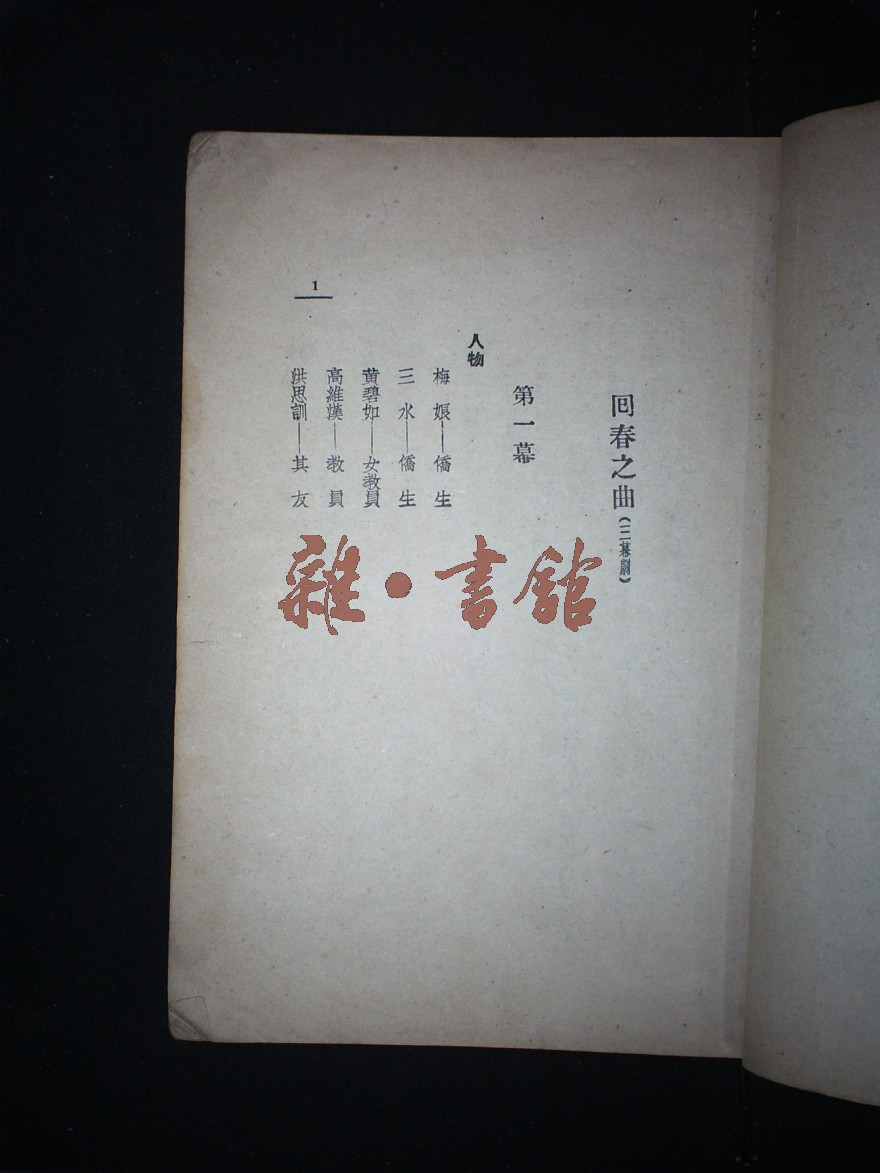 回春之曲(三幕劇)
第一幕
人物
梅娘——僑生
三水——僑生
黃碧如——女教員
高維漢——教員
洪思訓——其友
1
雜·書館